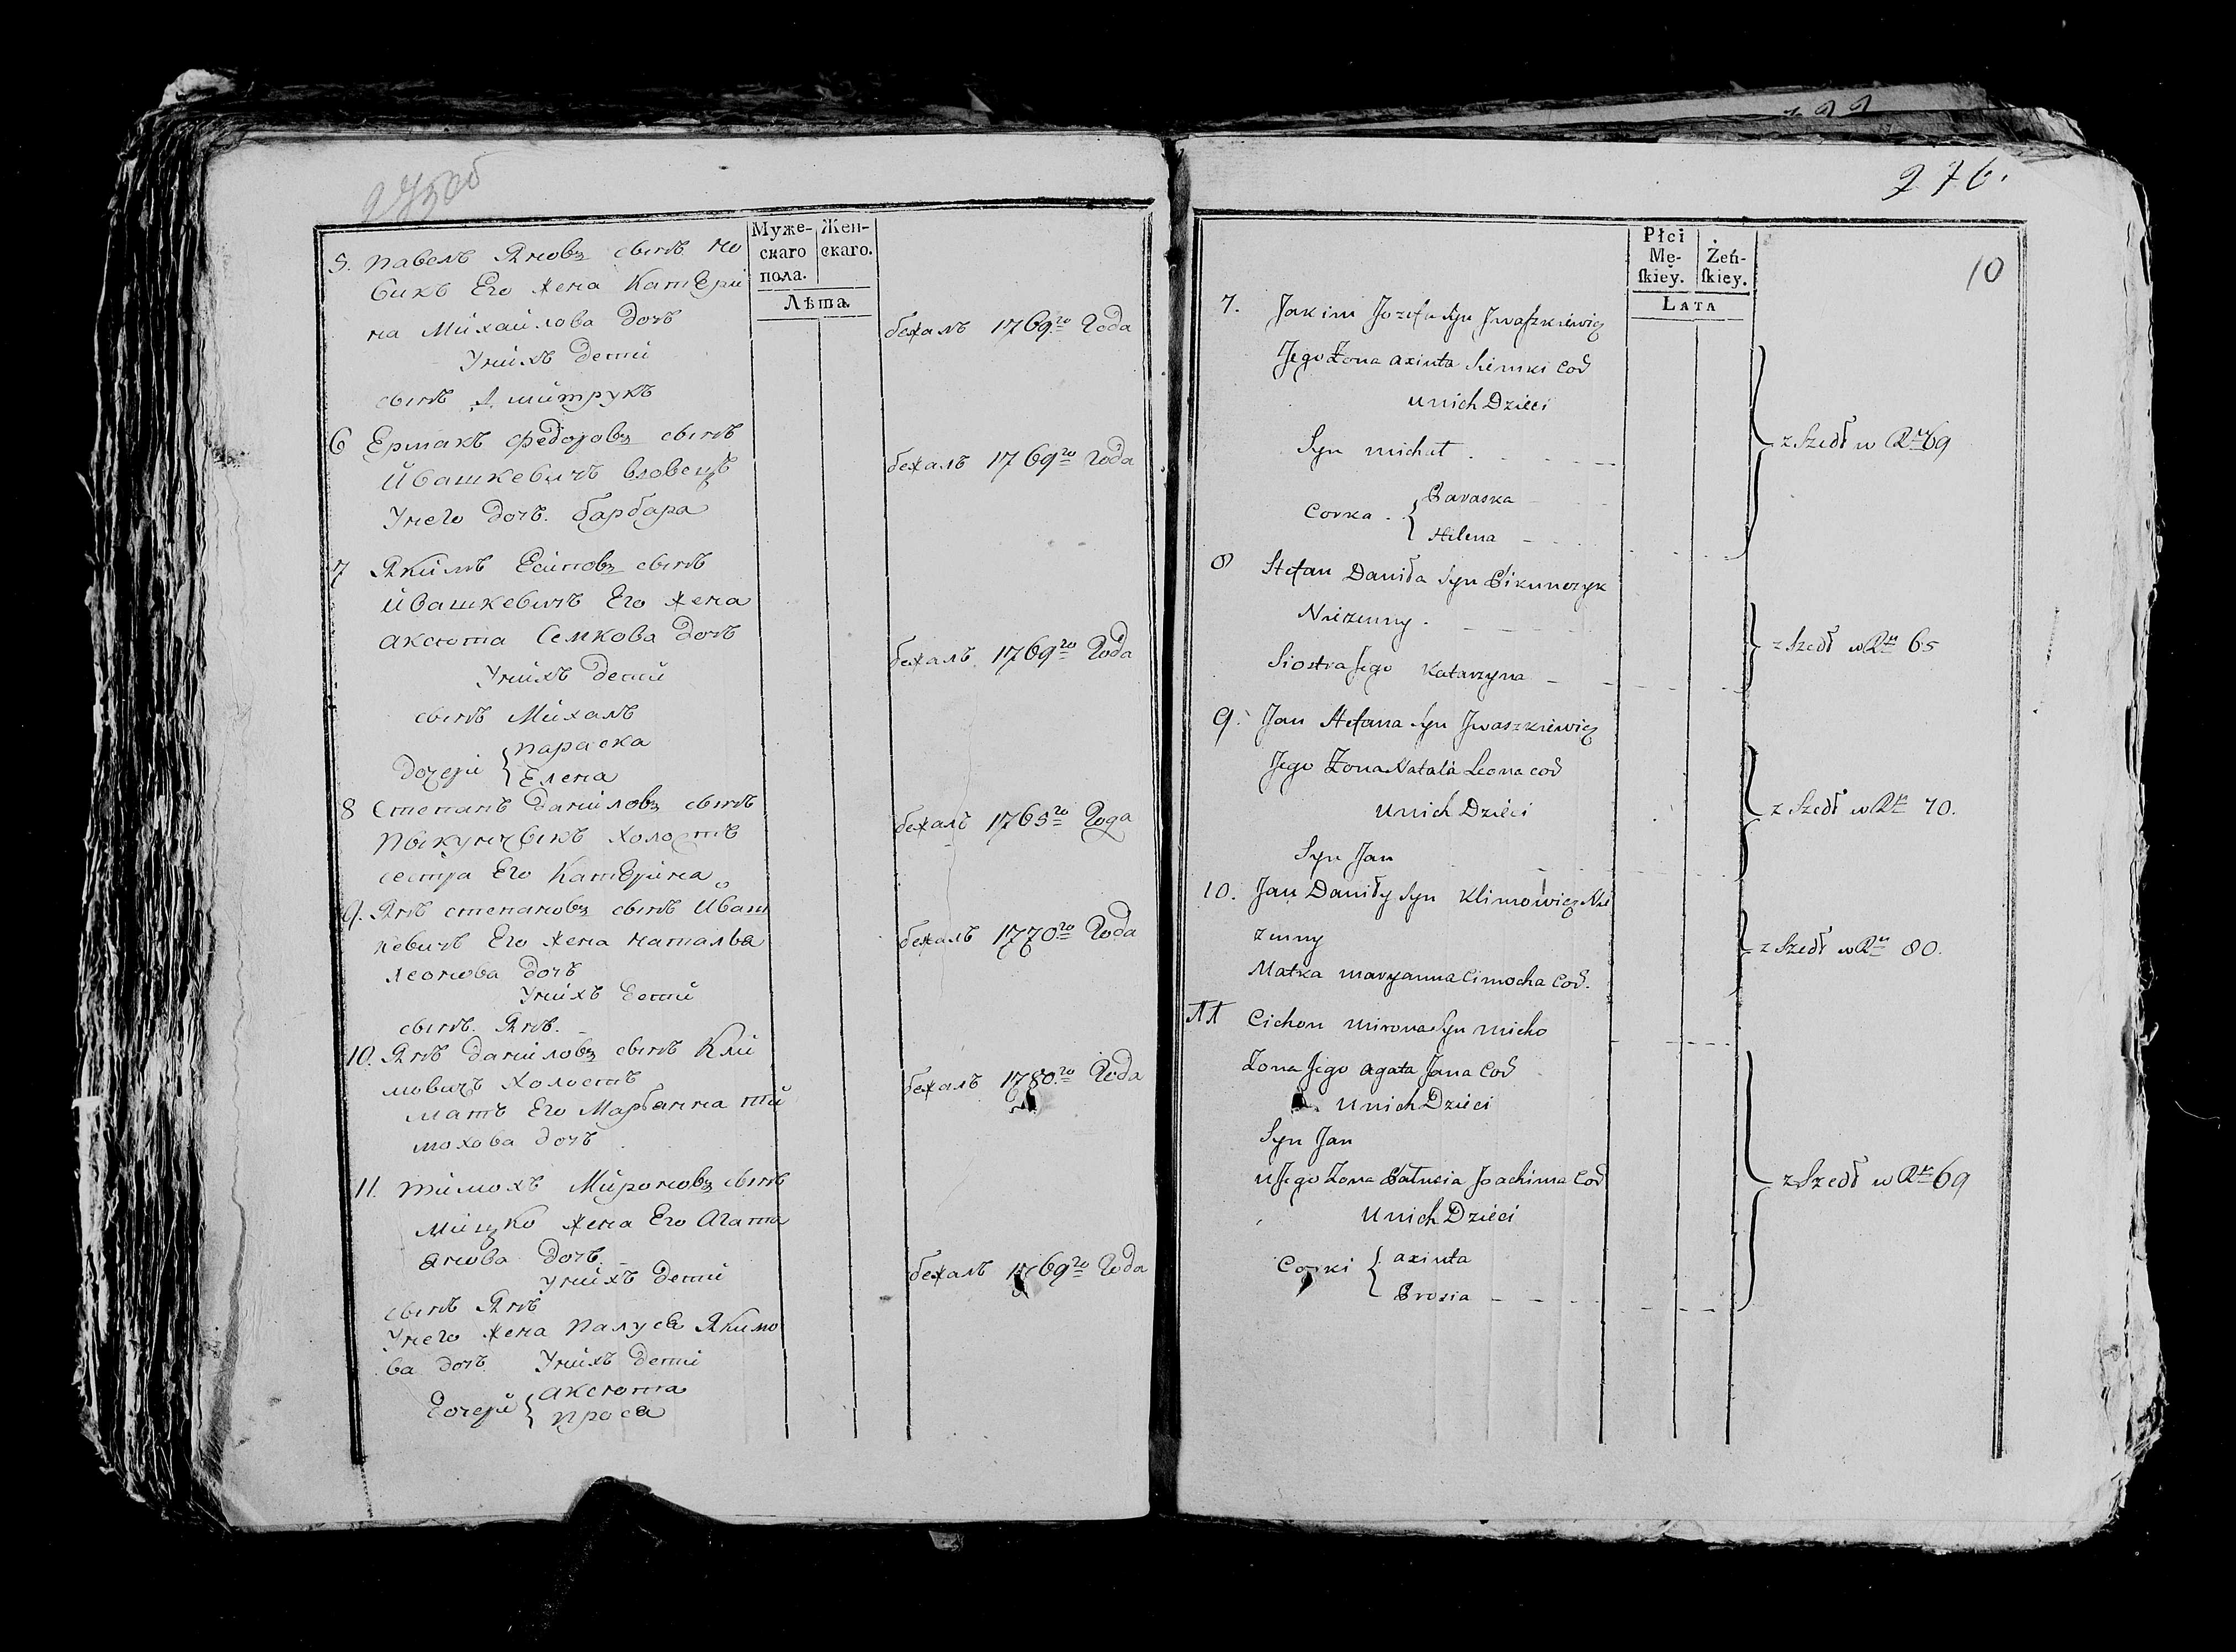 275об
Муже-
скаго
пола.
Жен-
скаго.
Лѣта
5. павелъ Яновъ сынъ но
викъ Его жена Катери
на Михаилова дочь
Унихъ дети
сынъ Дмитрукъ
бежалъ 1769го Года
6 Ермакъ федоровъ сынъ
ивашкевичъ вдовецъ
Унего дочь барбара
бежалъ 1769го Года
7 Якимъ Есиповъ сынъ
ивашкевичъ Его жена
аксюта Семкова дочь
Унихъ дети
сынъ Михалъ
дочери { параска
Елена
бежалъ 1769го Года
8 Степанъ даниловъ сынъ
пыкунчыкъ холостъ
сестра Его Катерина
бежалъ 1765го Года
9. Янъ степановъ сынъ Иваш
кевичъ Его жена наталья
леонова дочь
Унихъ дети
сынъ Янъ.
бежалъ 1770го Года
10. Янъ даниловъ сынъ Кли
мовичъ холостъ
мать Его Марьянна ти
мохова дочь
бежалъ 1780го Года
11. тимохъ Мироновъ сынъ
мицко жена Его Агата
янова дочь
унихъ дети
сынъ Янъ
Унего жена палуся Якимо
ва дочь Унихъ дети
дочери { аксюта
прося
бежалъ 1769го Года
276.
10
Płci
Mę-
skiey.
Żeń-
skiey.
LATA
7. Jakim Jozefa Syn Jwaszkiewicz
Jego Żona axiuta Siemki Cod
unich Dzieci
Syn michał
Corka { Paraska
Hilena
zSzedł w Rku 69
8 Stefan Daniła Syn Pikunczyk
Nieżenny
Siostra Jego Katarzyna
zSzedł w Rku 65
9. Jan Stefana Syn Jwaszkiewicz
Jego Żona Natala Leona cod
unich Dzieci
Syn Jan
zSzedł w Rku 70.
10. Jan Daniły Syn Klimowicz Nie
żenny
Matka maryanna Cimocha Cod.
zSzedł w Rku 80.
11 Cichon mirona Syn micko
Żona Jego agata Jana Cod
unich Dzieci
Syn Jan
uJego Żona Palusia Joachima Cod
unich Dzieci
Corki { axiuta
Prosia
zSzedł w Rku 69